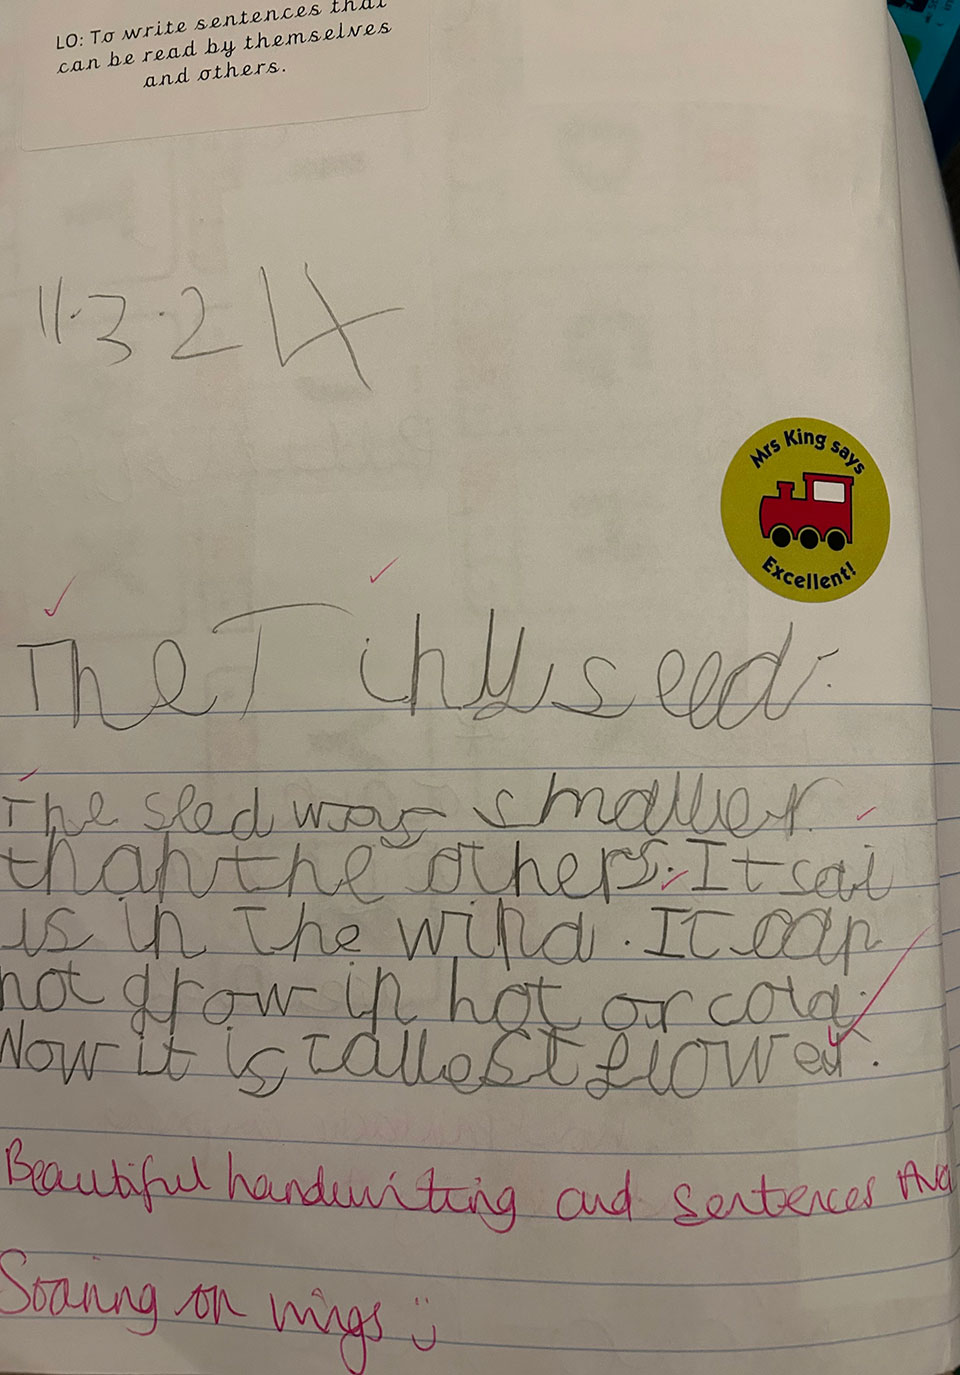 LO: To write sentences that
can be read by themselves
and others.
11.3.24
Mrs King says
Excellent!
The Tiny seed.
The seed was smaller
than the others. It sai
is in the wind. It can
not grow in hot or cold.
Now it is tallest flower.
Beautiful handwriting and sentences Ava
Soaring on wings :)